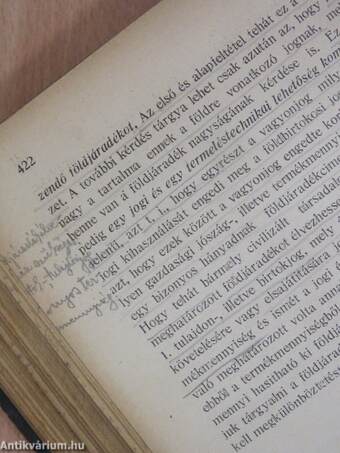 422
zendő földjáradékot. Az első és alapfeltétel tehát ez a
zet. A további kérdés tárgya lehet csak azután az, hogy
nagy a tartalma ennek a földre vonatkozó jognak, me
benne van a földjáradék nagyságának kérdése is. Ez
pedig egy jogi és egy termeléstechnikai lehetőség kom
jelenti, azt t. i., hogy egyrészt a vagyonjog mily
jogi kihasználását engedi meg a földbirtokosi jog
azt, hogy ezek között a vagyonjog engedte ko
ilyen gazdasági jószág-, illetve termékmenny
egy bizonyos hányadnak földjáradékkénti
Hogy tehát bármely civilizált társadal
meghatározott földjáradékot élvezhesse
1. tulajdon-, illetve birtokjog, mely a
követelésére vagy elsajátítására
mékmennyiség és ismét a jogi
való meghatározott volta ann
ebből a termékmennyiségből
mennyi hasítható ki földjára
juk tárgyalni a földjára
kell megkülönböztetn
Antikvárium.hu